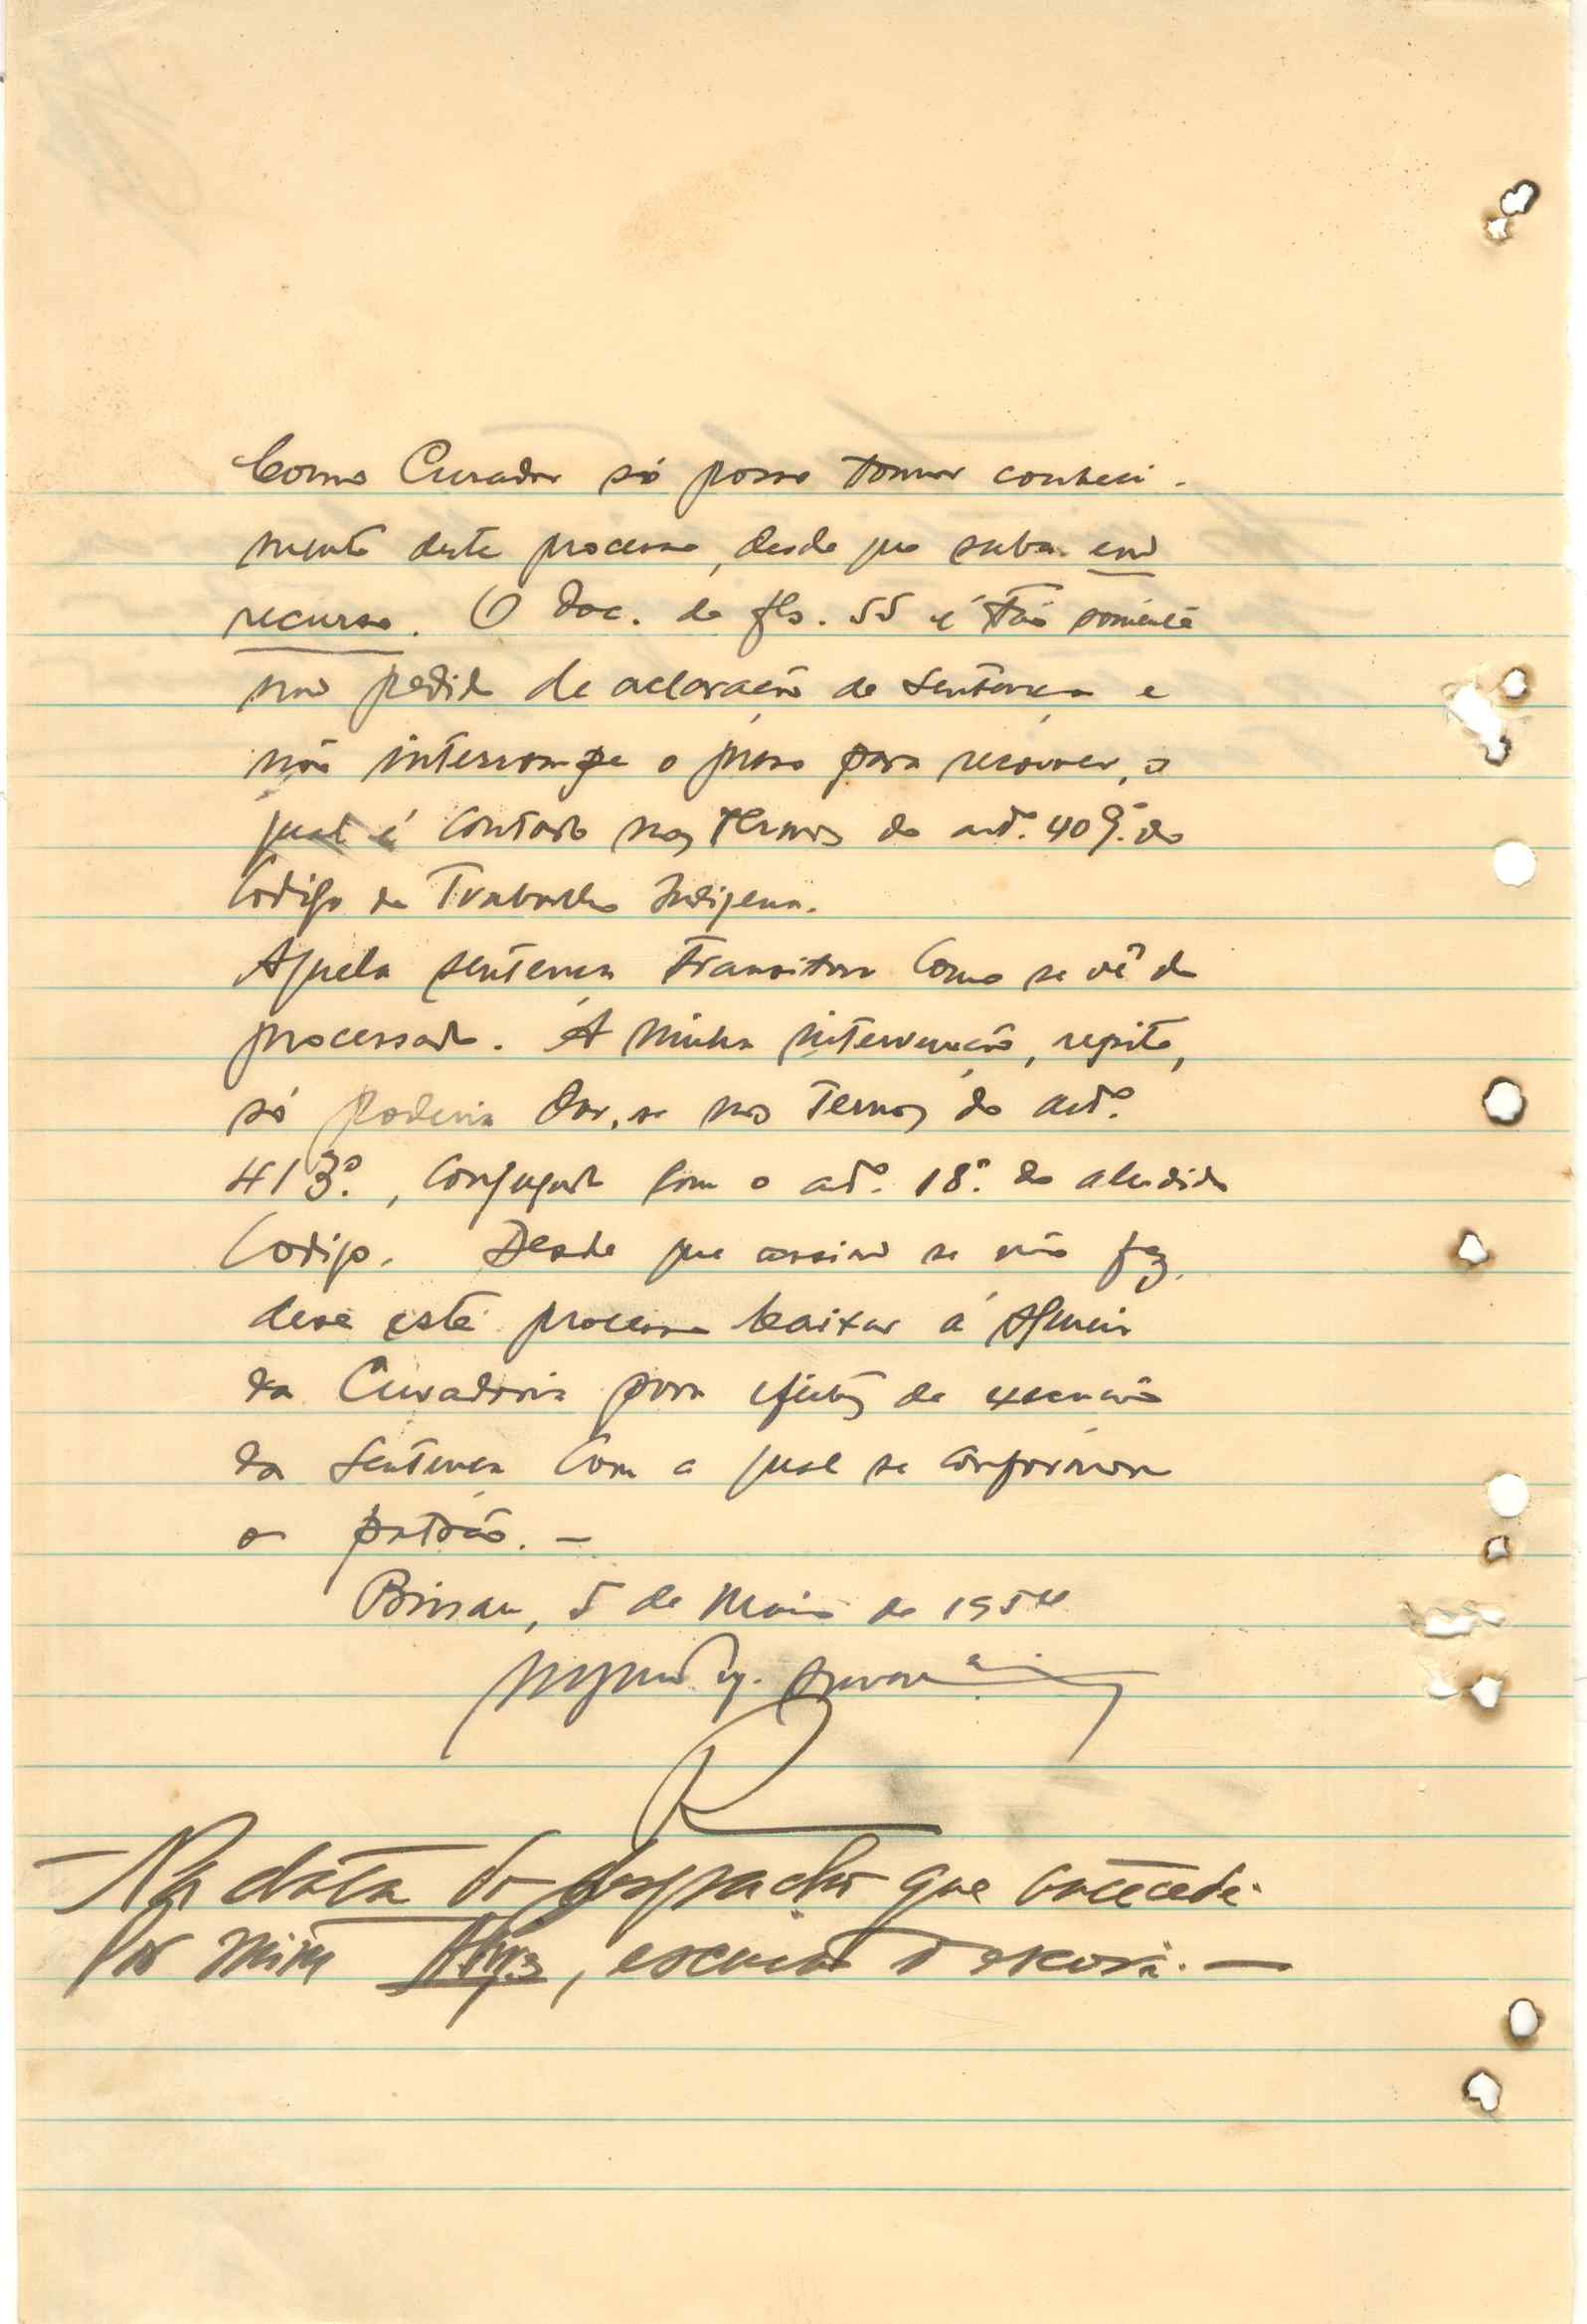 Como Curador só posso tomar conheci-
mento deste processo, desde que suba em
recurso. O Doc. de fls. 55 é tão somente
um pedido de aclaração de sentença e
não interrompe o prazo para recorrer, o
qual é contado nos termos do artº. 409º. do
Codigo do Trabalho Indigena.
Aquela sentença transitou como se vê do
processado. A minha intervenção, repito,
só poderia dar-se nos termos do artº.
413º., conjugado com o artº. 18º. do aludido
Codigo. Desde que assim se não fez,
deve este processo baixar á Agencia
da Curadoria para efeitos de execução
da sentença com a qual se conformou
o patrão. —
Bissau, 5 de Maio de 1954
R
— Na data do despacho que antecede
por mim, escrivão o escrevi. —